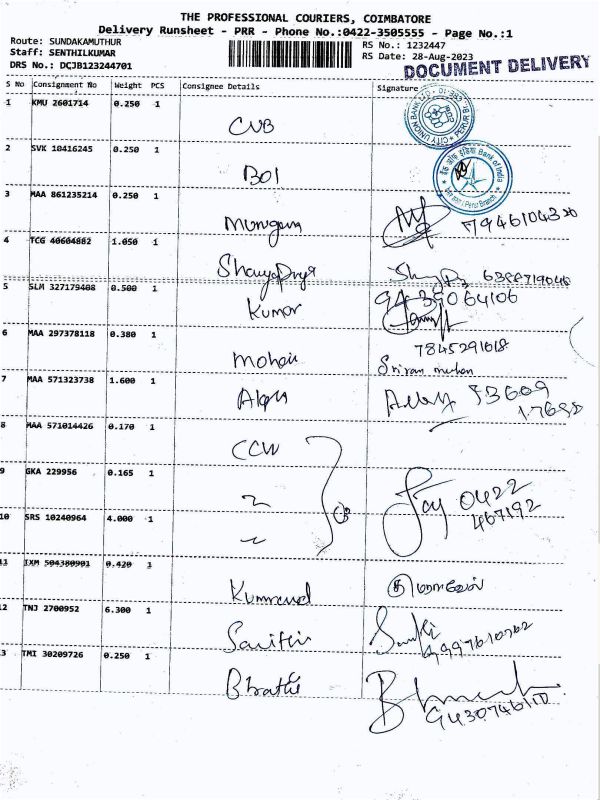 THE PROFESSIONAL COURIERS, COIMBATORE
Delivery Runsheet - PRR - Phone No.:0422-3505555 - Page No.:1
Route: SUNDAKAMUTHUR
RS No.: 1232447
Staff: SENTHILKUMAR
RS Date: 28-Aug-2023
DRS No.: DCJB123244701
DOCUMENT DELIVERY
S No Consignment No Weight PCS Consignee Details Signature
1 KMU 2601714 0.250 1
CUB
CITY UNION BANK LTD
2 SVK 10416245 0.250 1
BOI
बैंक ऑफ इंडिया Bank of India
3 MAA 861235214 0.250 1
Murugan
4 TCG 40604882 1.050 1
5 SLM 327179408 0.500 1
Kumar 9439064106
6 MAA 297378118 0.380 1
7845291018
Mohan
7 MAA 571323738 1.600 1
8 MAA 571014426 0.170 1
CCW
9 GKA 229956 0.165 1
Jay 0422
467192
10 SRS 10240964 4.000 1
11 IXM 504380901 0.420 1
12 TNJ 2700952 6.300 1
13 TMI 30209726 0.250 1